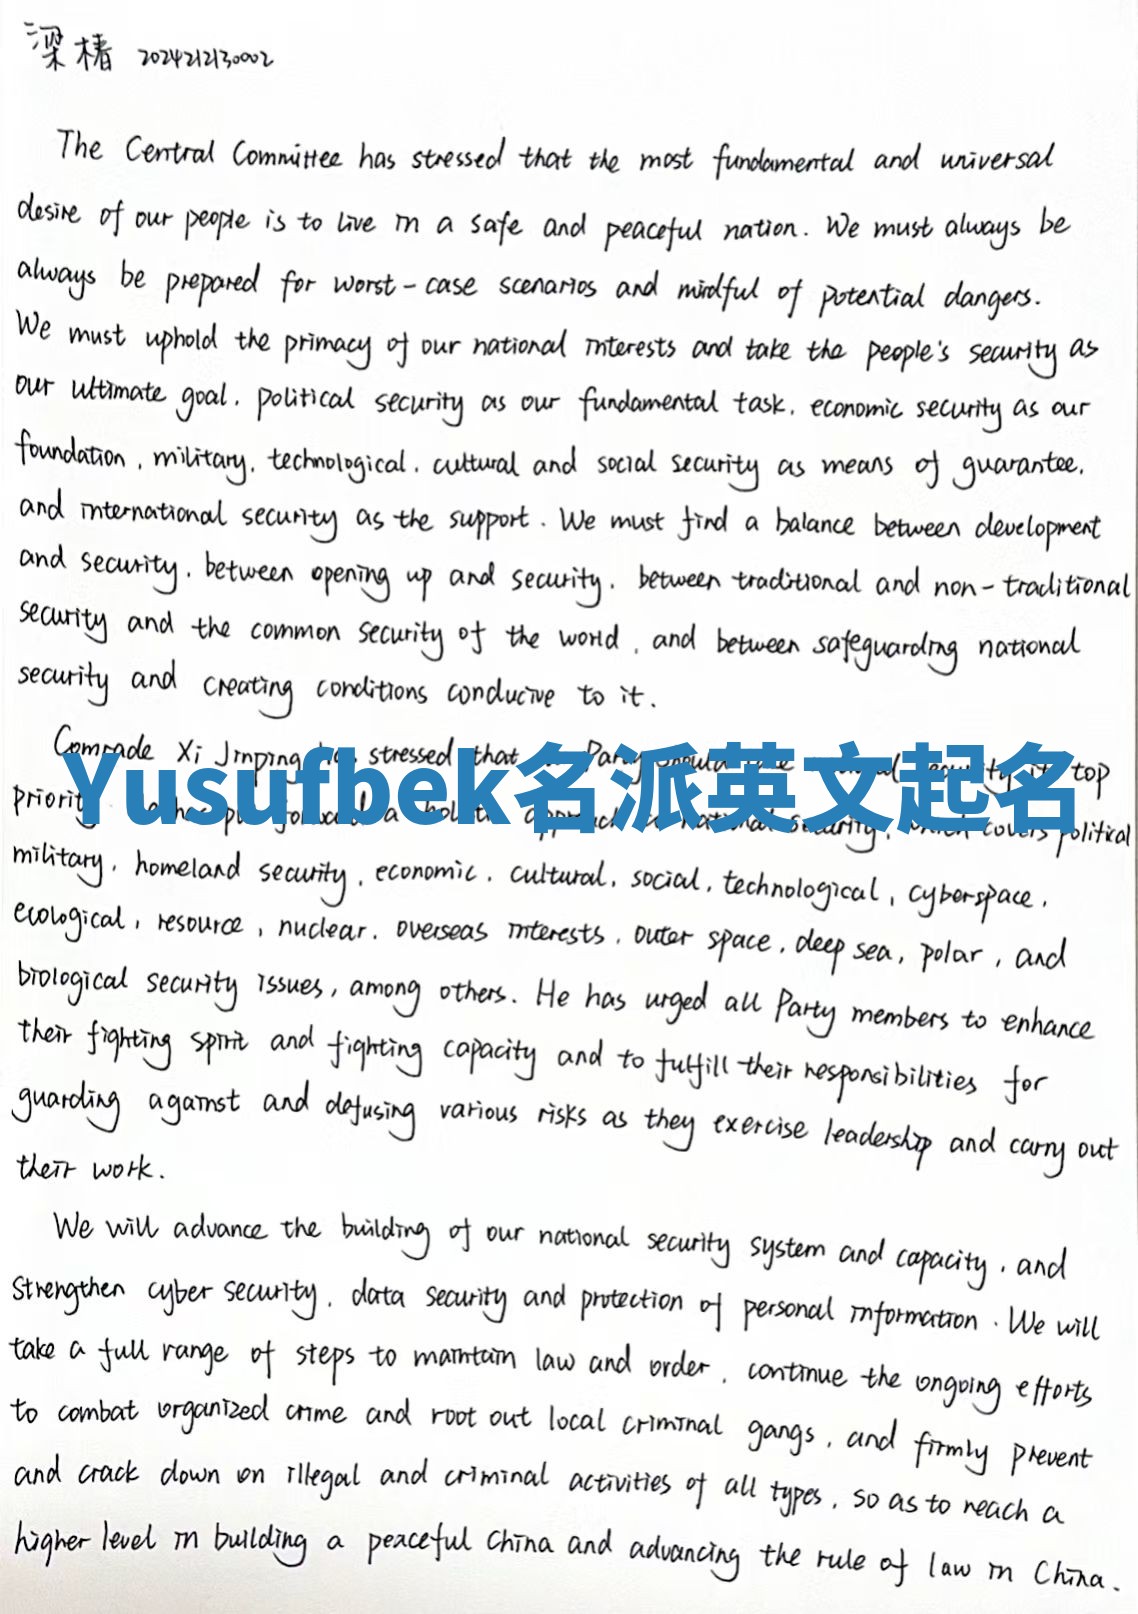 梁椿 2024212130002
The Central Committee has stressed that the most fundamental and universal
desire of our people is to live in a safe and peaceful nation. We must always be
always be prepared for worst-case scenarios and mindful of potential dangers.
We must uphold the primacy of our national interests and take the people's security as
our ultimate goal, political security as our fundamental task, economic security as our
foundation, military, technological, cultural and social security as means of guarantee,
and international security as the support. We must find a balance between development
and security, between opening up and security, between traditional and non-traditional
security and the common security of the world, and between safeguarding national
security and creating conditions conducive to it.
Comrade Xi Jinping stressed that Party should top
Yusufbek名派英文起名
priority a approach national security, which covers political
military, homeland security, economic, cultural, social, technological, cyberspace,
ecological, resource, nuclear, overseas interests, outer space, deep sea, polar, and
biological security issues, among others. He has urged all Party members to enhance
their fighting spirit and fighting capacity and to fulfill their responsibilities for
guarding against and defusing various risks as they exercise leadership and carry out
their work.
We will advance the building of our national security system and capacity, and
strengthen cyber security, data security and protection of personal information. We will
take a full range of steps to maintain law and order, continue the ongoing efforts
to combat organized crime and root out local criminal gangs, and firmly prevent
and crack down on illegal and criminal activities of all types, so as to reach a
higher level in building a peaceful China and advancing the rule of law in China.